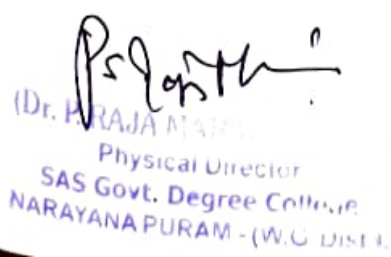 (Dr. P. RAJA
Physical Director
SAS Govt. Degree College
NARAYANAPURAM - (W.G DIST).